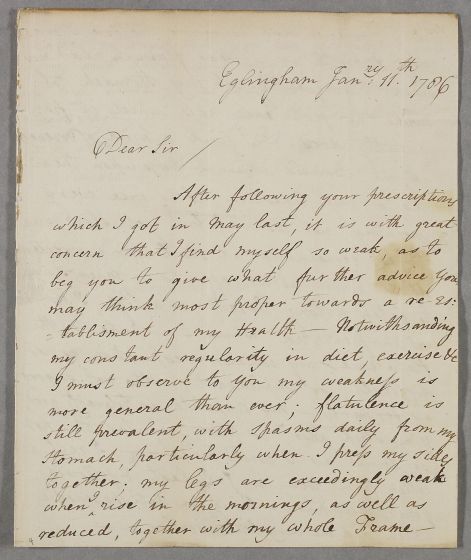 Eglingham Jan:ry 11.th 1786
Dear Sir /
After following your prescriptions
which I got in May last, it is with great
concern that I find myself so weak, as to
beg you to give what further advice You
may think most proper towards a re-es:
-tablisment of my Health — Notwithsanding
my constant regularity in diet, exercise &c
I must observe to you my weakness is
more general than ever; flatulence is
still prevalent, with spasms daily from my
stomach, particularly when I press my sides
together; my legs are exceedingly weak
when I rise in the mornings, as well as
reduced, together with my whole Frame —